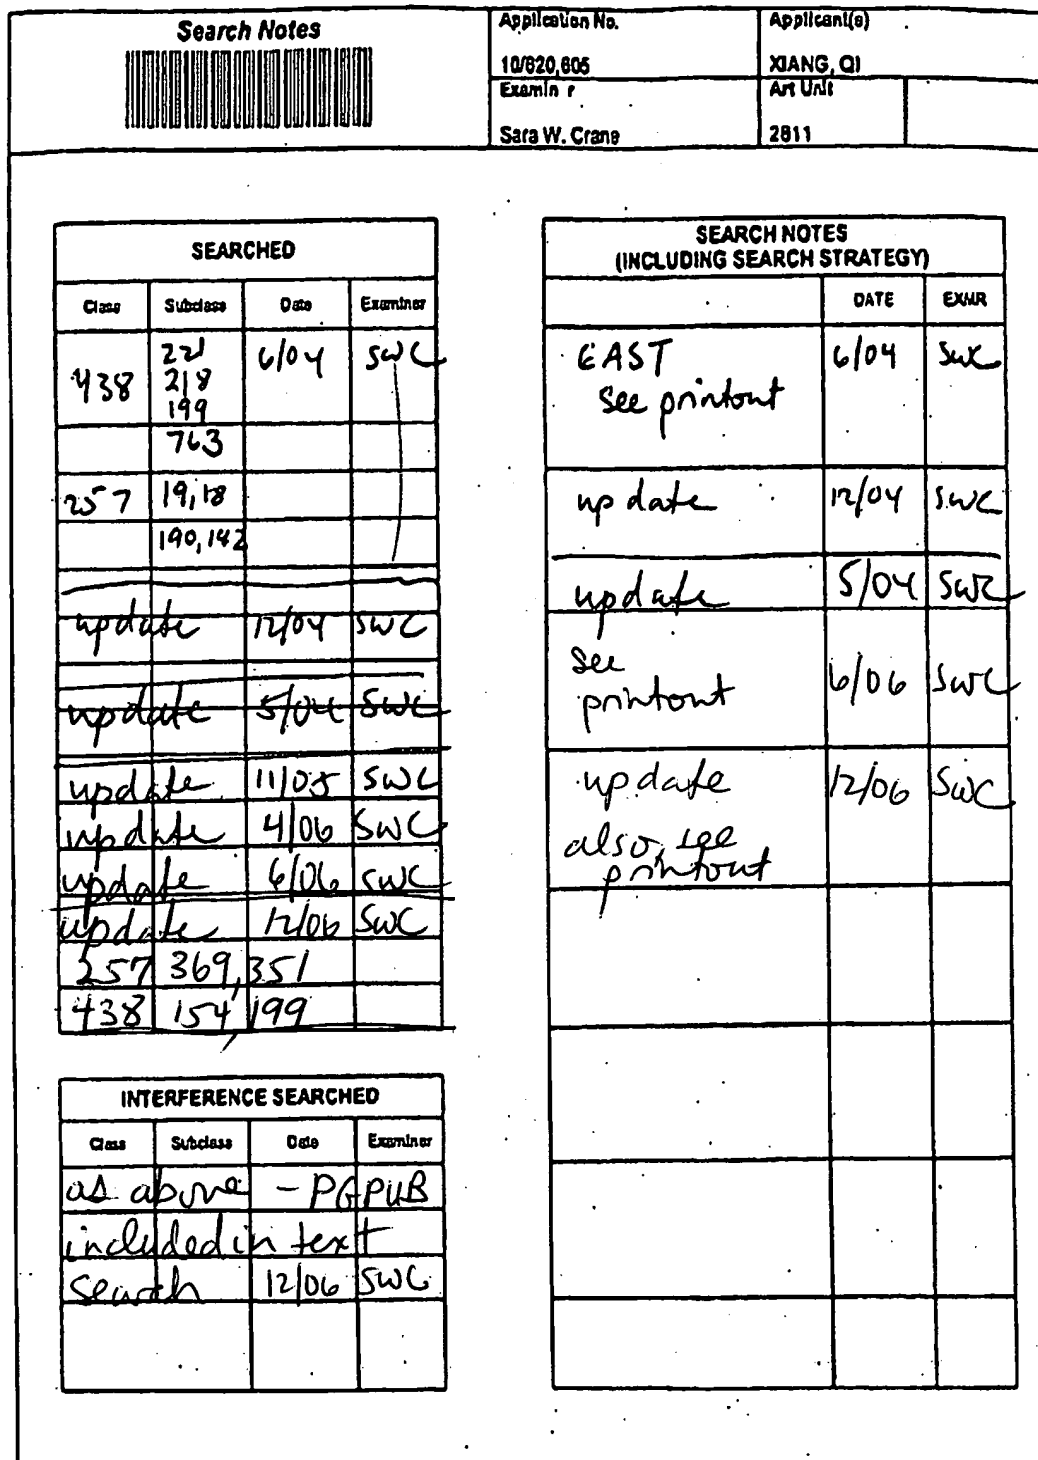 Search Notes
Application No.
10/820,605
Applicant(s)
XIANG, QI
Examin r
Sara W. Crane
Art Unit
2811
SEARCHED
Class Subclass Date Examiner
438 221 6/04 SWC
218
199
763
257 19,18
190,142
update 12/04 SWC
update 5/04 SWC
update 11/05 SWC
update 4/06 SWC
update 6/06 SWC
update 12/06 SWC
257 369,351
438 154,199
INTERFERENCE SEARCHED
Class Subclass Date Examiner
as above - PGPUB
included in text
search 12/06 SWC
SEARCH NOTES
(INCLUDING SEARCH STRATEGY)
DATE EXMR
EAST 6/04 SWC
see printout
update 12/04 SWC
update 5/04 SWC
see
printout 6/06 SWC
update 12/06 SWC
also, see
printout